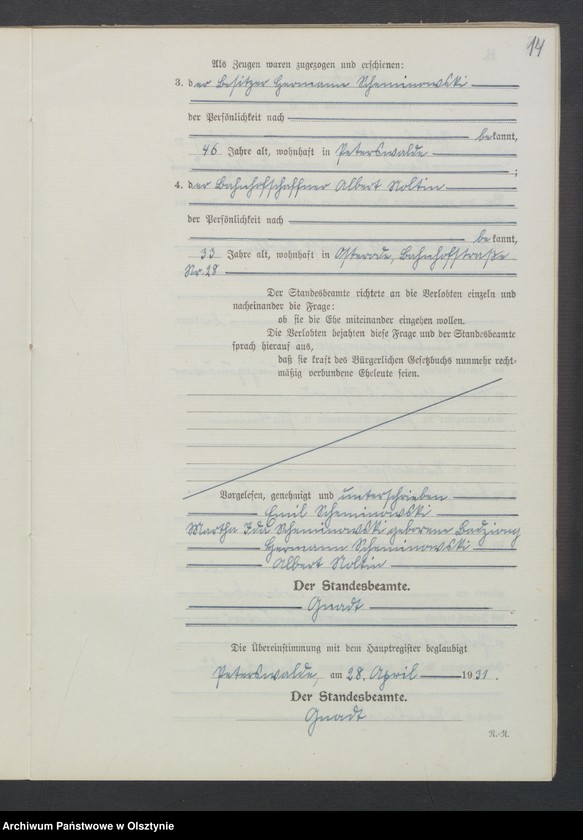 14
Als Zeugen waren zugezogen und erschienen:
3. der Besitzer Hermann Scheminowski
der Persönlichkeit nach
bekannt,
46 Jahre alt, wohnhaft in Peterswalde
;
4. der Bahnhofschaffner Albert Noltin
der Persönlichkeit nach
bekannt,
33 Jahre alt, wohnhaft in Osterode, Bahnhofstraße
Nr. 28
Der Standesbeamte richtete an die Verlobten einzeln und
nacheinander die Frage:
ob sie die Ehe miteinander eingehen wollen.
Die Verlobten bejahten diese Frage und der Standesbeamte
sprach hierauf aus,
daß sie kraft des Bürgerlichen Gesetzbuchs nunmehr recht-
mäßig verbundene Eheleute seien.
Vorgelesen, genehmigt und unterschrieben
Emil Scheminowski
Martha Ida Scheminowski geborene Badziong
Hermann Scheminowski
Albert Noltin
Der Standesbeamte.
Gnadt
Die Übereinstimmung mit dem Hauptregister beglaubigt
Peterswalde, am 28. April 1931.
Der Standesbeamte.
Gnadt
R.-R.
Archiwum Państwowe w Olsztynie